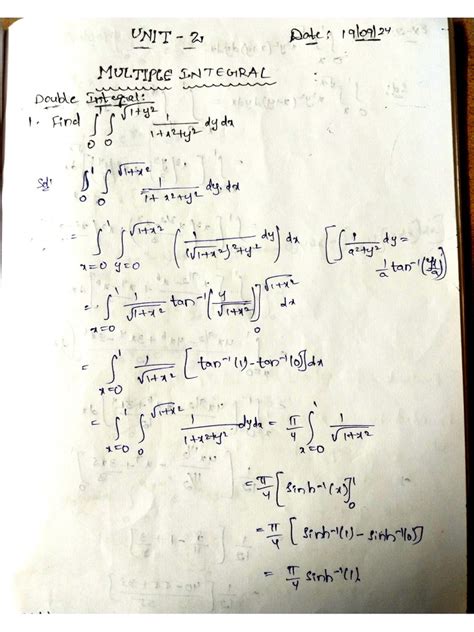 UNIT - 2, Date: 19/09/24
MULTIPLE INTEGRAL
Double Integral:
1. Find ∫₀¹ ∫₀^√(1+y²) 1/(1+x²+y²) dy dx
Sol: ∫₀¹ ∫₀^√(1+x²) 1/(1+x²+y²) dy. dx
= ∫_{x=0}^1 ∫_{y=0}^√(1+x²) (1/((√(1+x²))²+y²) dy) dx [∫ 1/(a²+y²) dy =
1/a tan⁻¹(y/a)]
= ∫_{x=0}^1 1/√(1+x²) tan⁻¹(y/√(1+x²)]₀^√(1+x²) dx
= ∫_{x=0}^1 1/√(1+x²) [tan⁻¹(1) - tan⁻¹(0)] dx
= ∫_{x=0}^1 ∫₀^√(1+x²) 1/(1+x²+y²) dy dx = π/4 ∫_{x=0}^1 1/√(1+x²)
= π/4 [sinh⁻¹(x)]₀¹
= π/4 [sinh⁻¹(1) - sinh⁻¹(0)]
= π/4 sinh⁻¹(1)